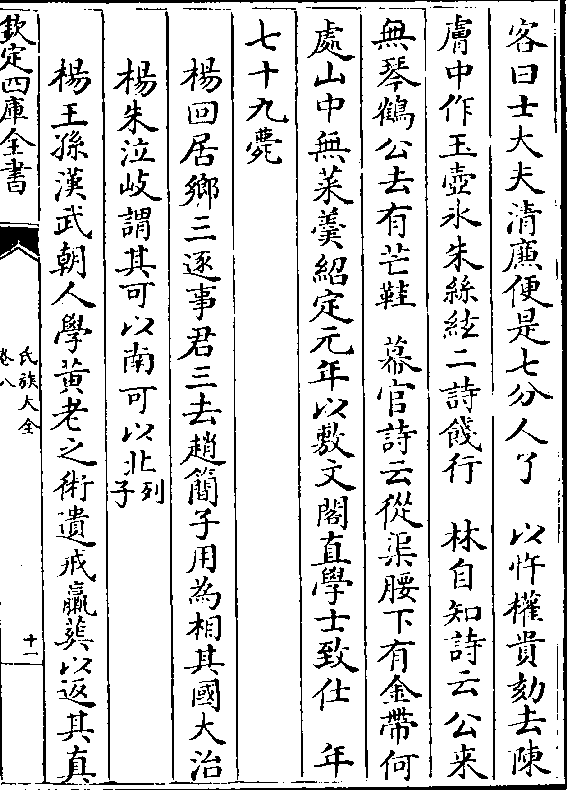 客曰士大夫清廉便是七分人了　以忤權貴劾去陳
膚中作玉壺氷朱絲絃二詩餞行　林自知詩云公来
無琴鶴公去有芒鞋　幕官詩云從渠腰下有金帶何
處山中無菜羮紹定元年以敷文閣直學士致仕　年
七十九薨
楊回居鄉三逐事君三去趙簡子用為相其國大治
楊朱泣岐謂其可以南可以北列子
楊王孫漢武朝人學黄老之術遺戒羸葬以返其真
欽定四庫全書
氏族大全
卷八
十一